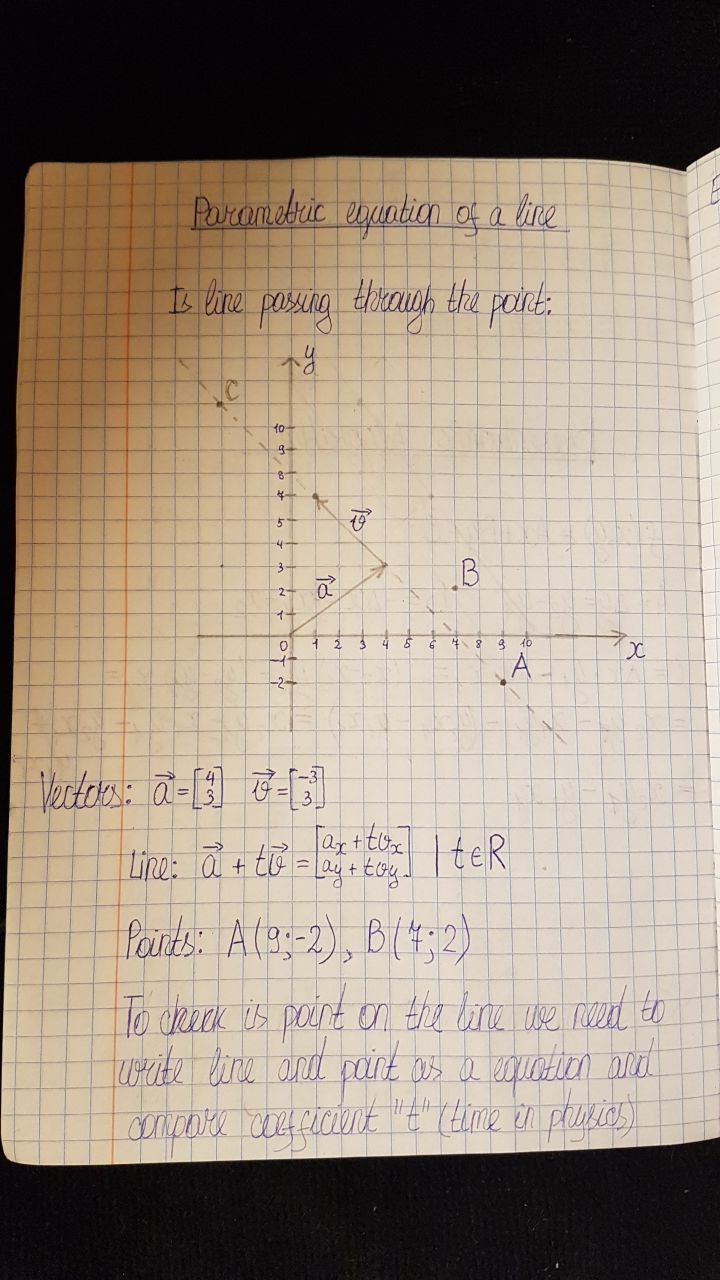 Parametric equation of a line
Is line passing through the point:
y
C
10
9
8
7
6
5
4
3
2
1
0 1 2 3 4 5 6 7 8 9 10
x
-1
-2
v⃗
a⃗
B
A
Vectors: a⃗ = [4 3] v⃗ = [-3 3]
Line: a⃗ + tv⃗ = [ax + tvx ay + tvy] | t∈R
Points: A(9;-2), B(7;2)
To check is point on the line we need to
write line and point as a equation and
compare coefficient "t" (time in physics)